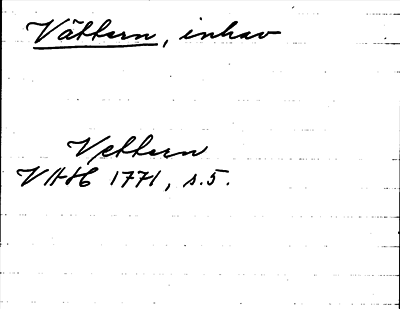 Vättern, inhav
Vettern
VAH 1771, s.5.